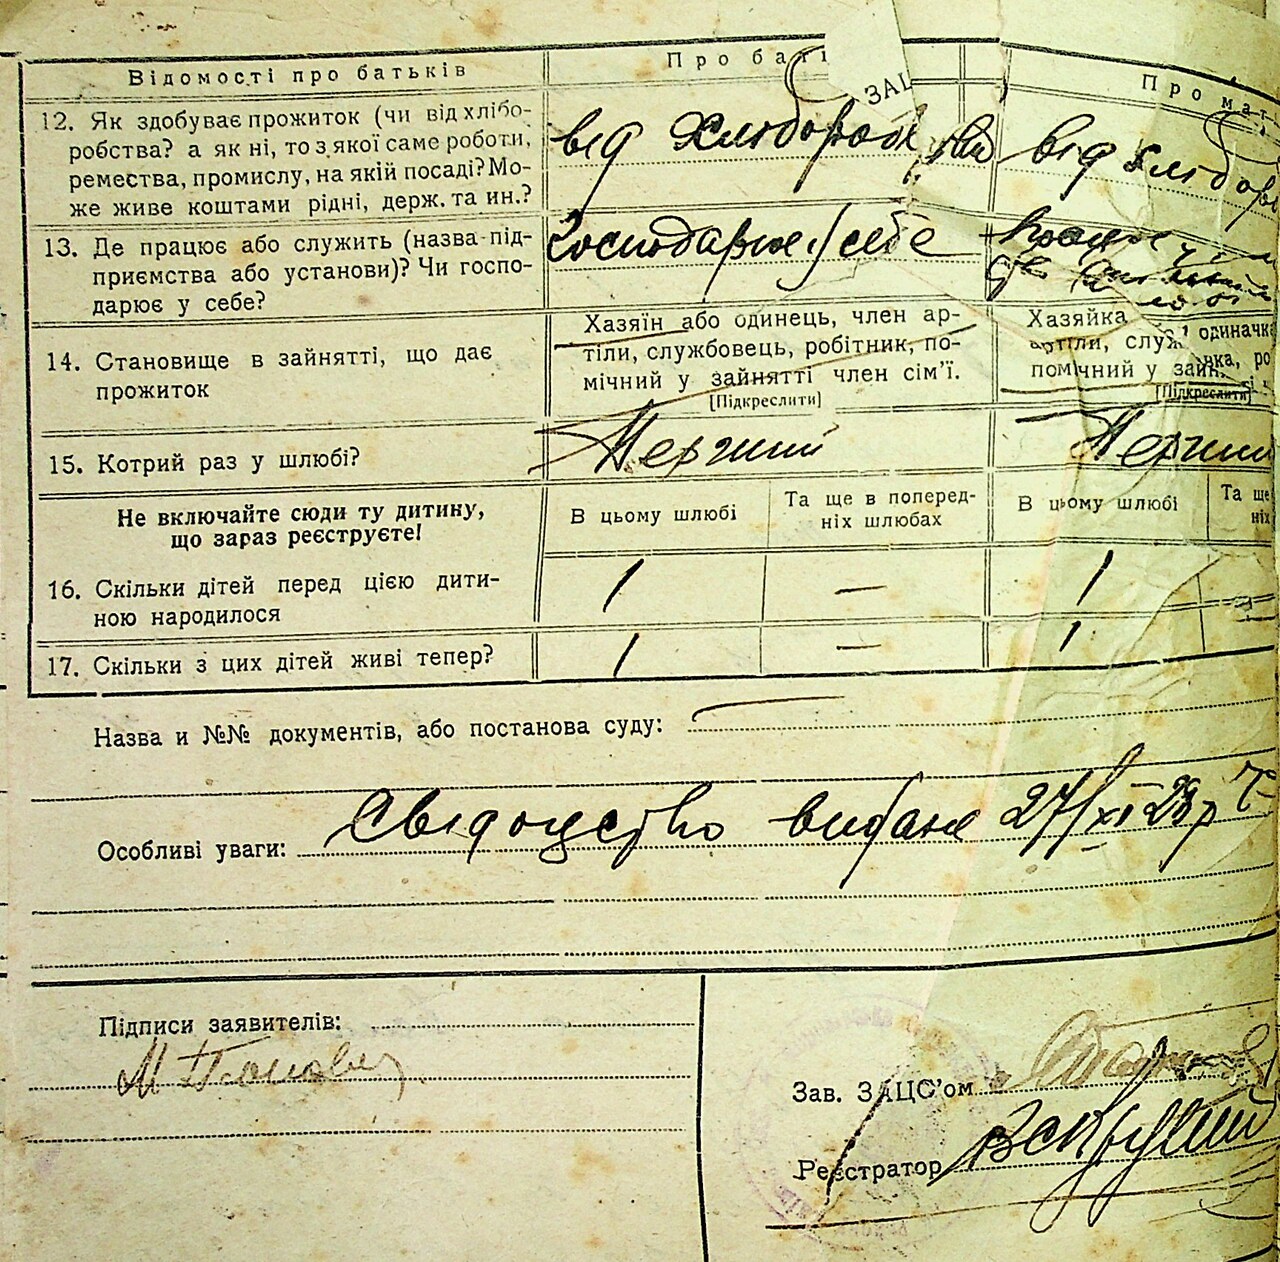 Відомості про батьків
Про баті
Про мат
ЗАЦ
12. Як здобуває прожиток (чи від хлібо-
робства? а як ні, то з якої саме роботи,
ремества, промислу, на якій посаді? Мо-
же живе коштами рідні, держ. та ин.?
від
від
13. Де працює або служить (назва під-
приємства або установи)? Чи госпо-
дарює у себе?
Господарює у себе
14. Становище в зайнятті, що дає
прожиток
Хазяїн або одинець, член ар-
тіли, службовець, робітник, по-
мічний у зайнятті член сім'ї.
[Підкреслити]
Хазяйка одиначка
артіли, служ вка, ро
помічний у зайн
[Підкреслити]
15. Котрий раз у шлюбі?
Перший
Перший
Не включайте сюди ту дитину,
що зараз реєструєте!
В цьому шлюбі
Та ще в поперед-
ніх шлюбах
В цьому шлюбі
Та ще
ніх
16. Скільки дітей перед цією дити-
ною народилося
1 — 1 —
17. Скільки з цих дітей живі тепер?
1 — 1
Назва и №№ документів, або постанова суду:
Особливі уваги: Свідоцтво видане 27/XI 29 р
Підписи заявителів:
Зав. ЗАЦС'ом
Реєстратор